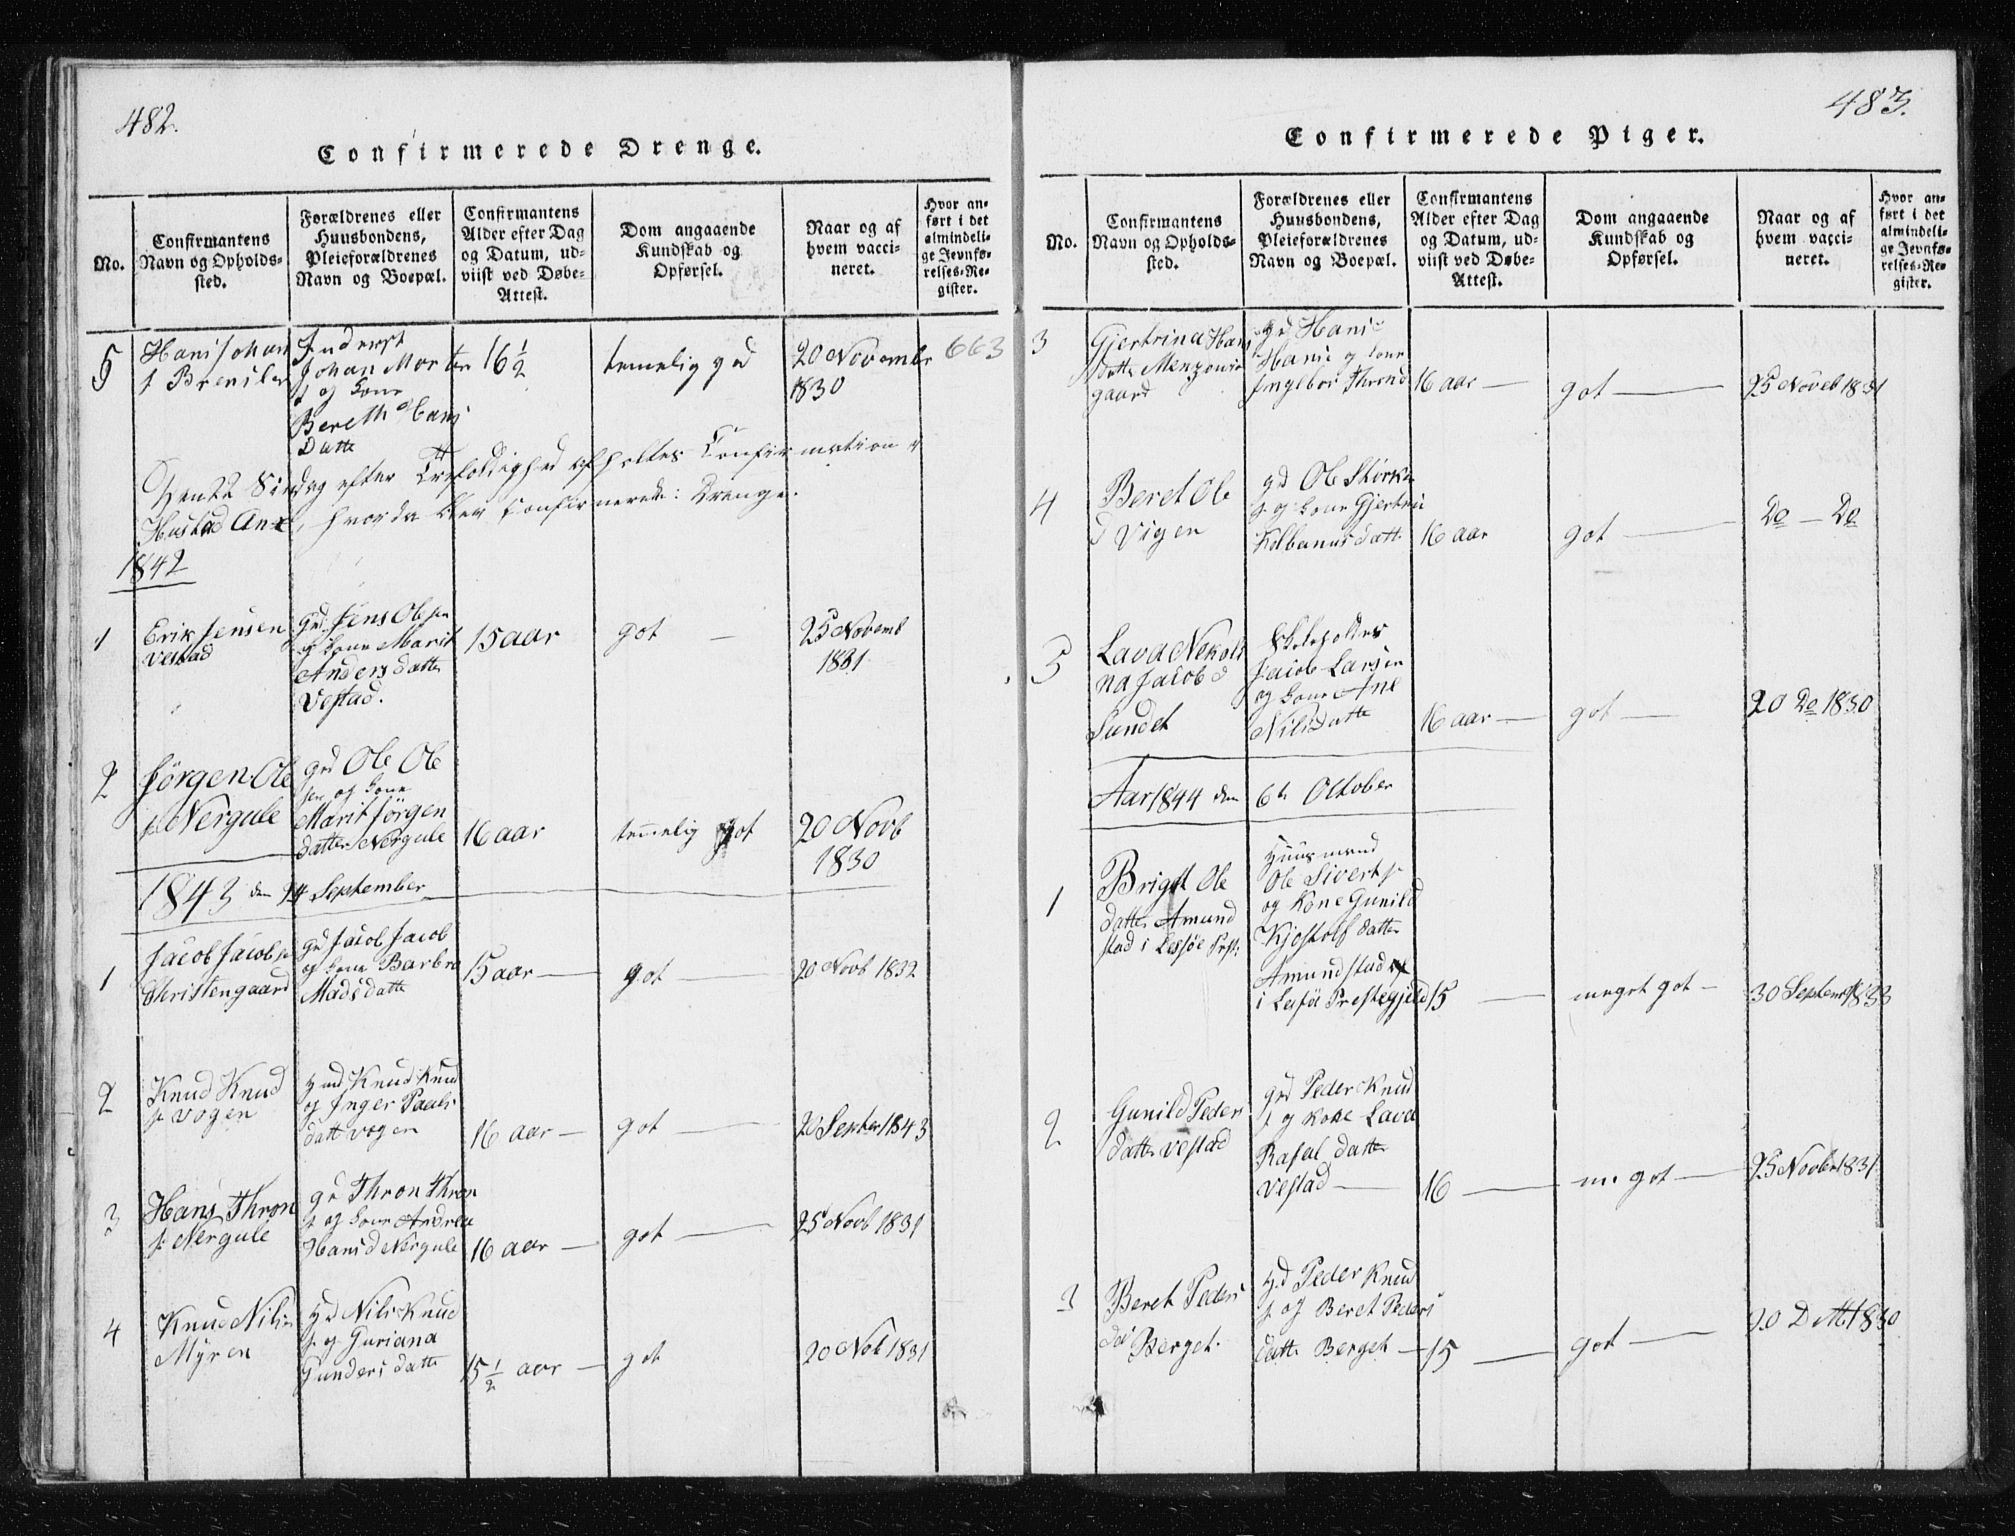 482.
Confirmerede Drenge.
No.
Confirmantens
Navn og Opholds-
sted.
Forældrenes eller
Huusbondens,
Pleieforældrenes
Navn og Boepæl.
Confirmantens
Alder efter Dag
og Datum, ud-
viist ved Døbe-
Attest.
Dom angaaende
Kundskab og
Opførsel.
Naar og af
hvem vacci-
neret.
Hvor an-
ført i det
almindeli-
ge Jevnfø-
relses-Re-
gister.
5
Hans Johan
Inderst
Johan Morten
s og Kone
Bereth Hans
Datte
16 1/2
temelig god
20 Novembr
1830
663
Søndag efter Trefoldighed afholtes Confirmation
Hustad Anex, hvor da blev Confirmerede: Drenge.
1842
1
Erik Jensen
Vestad
Gd Jens Olesen
og Kone Marit
Anders datter
Vestad.
15 aar
got
25 Novemb
1831
2
Jørgen Ole
s Nergule
Gd Ole Ole
sen og Kone
Marit Jørgen
datter Nergule
16 aar
temelig got
20 Novb
1830
1843 den 14 September
1
Jacob Jacobs
Christengaard
Gd Jacob Jacob
og Kone Barbro
Mads datte
15 aar
got
20 Novb 1832
2
Knud Knud
s Vogen
Knud Knud
og Inger Paals
datt Vogen
16 aar
got
20 Septer 1843
3
Hans Thron
s Nergule
gd Thron Thron
s og Kone Andrea
Hans d Nergule
16 aar
got
25 Novb 1831
4
Knud Nils
Myren
Gd Nils Knud
s og Guriana
Gunders datte
15 1/2 aar
got
20 Nob 1831
483.
Confirmerede Piger.
No.
Confirmantens
Navn og Opholds-
sted.
Forældrenes eller
Huusbondens,
Pleieforældrenes
Navn og Boepæl.
Confirmantens
Alder efter Dag
og Datum, ud-
viist ved Døbe-
Attest.
Dom angaaende
Kundskab og
Opførsel.
Naar og af
hvem vacci-
neret.
Hvor an-
ført i det
almindeli-
ge Jevnfø-
relses-Re-
gister.
3
Gjertrina Hans
datte
gaard
gd Hans
Hans og Kone
Ingebor Thrond
16 aar
got
25 Noveb 1831
4
Beret Ole
d Vigen
gd Ole Størker
s og Kone Gjertru
Kolbenus datt
16 aar
got
Do Do
5
Lava Nekoli
na Jacob d
Sundet
Jacob Larsen
og Kone Ane
Nils datte
16 aar
got
20 Do 1830
Aar 1844 den 6te Oktober
1
Brigt Ole
datter Amund
stad i Lesjøe Prst:
Huusmand
Ole Sivert s
og Kone Gunild
Kjostolf datter
Amundstad
i Lesjøe Prestegjeld
15
meget got
30 Septemr 1833
2
Gunild Peders
datter Vestad
gd Peder Knud
s og Kone Lava
Rafael datter
Vestad
16
m got
25 Novbr 1831
3
Beret Peders
da Berget.
gd Peder Knud
s og Beret Peders
datte Berget
15
got
20 1830